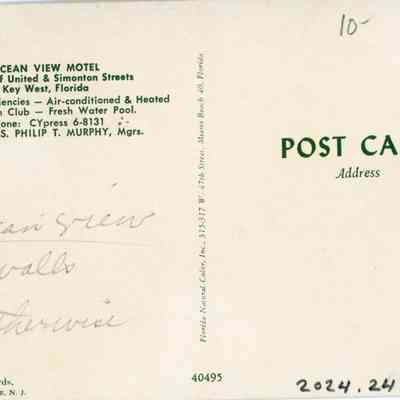 10-
CEAN VIEW MOTEL
f United & Simonton Streets
Key West, Florida
iencies — Air-conditioned & Heated
n Club — Fresh Water Pool.
one: CYpress 6-8131
S. PHILIP T. MURPHY, Mgrs.
ean view
walls
therwise
rds,
E, N. J.
Florida Natural Color, Inc., 315-317 N.W. 47th Street, Miami Beach 40, Florida
POST CA
Address
40495
2024.24